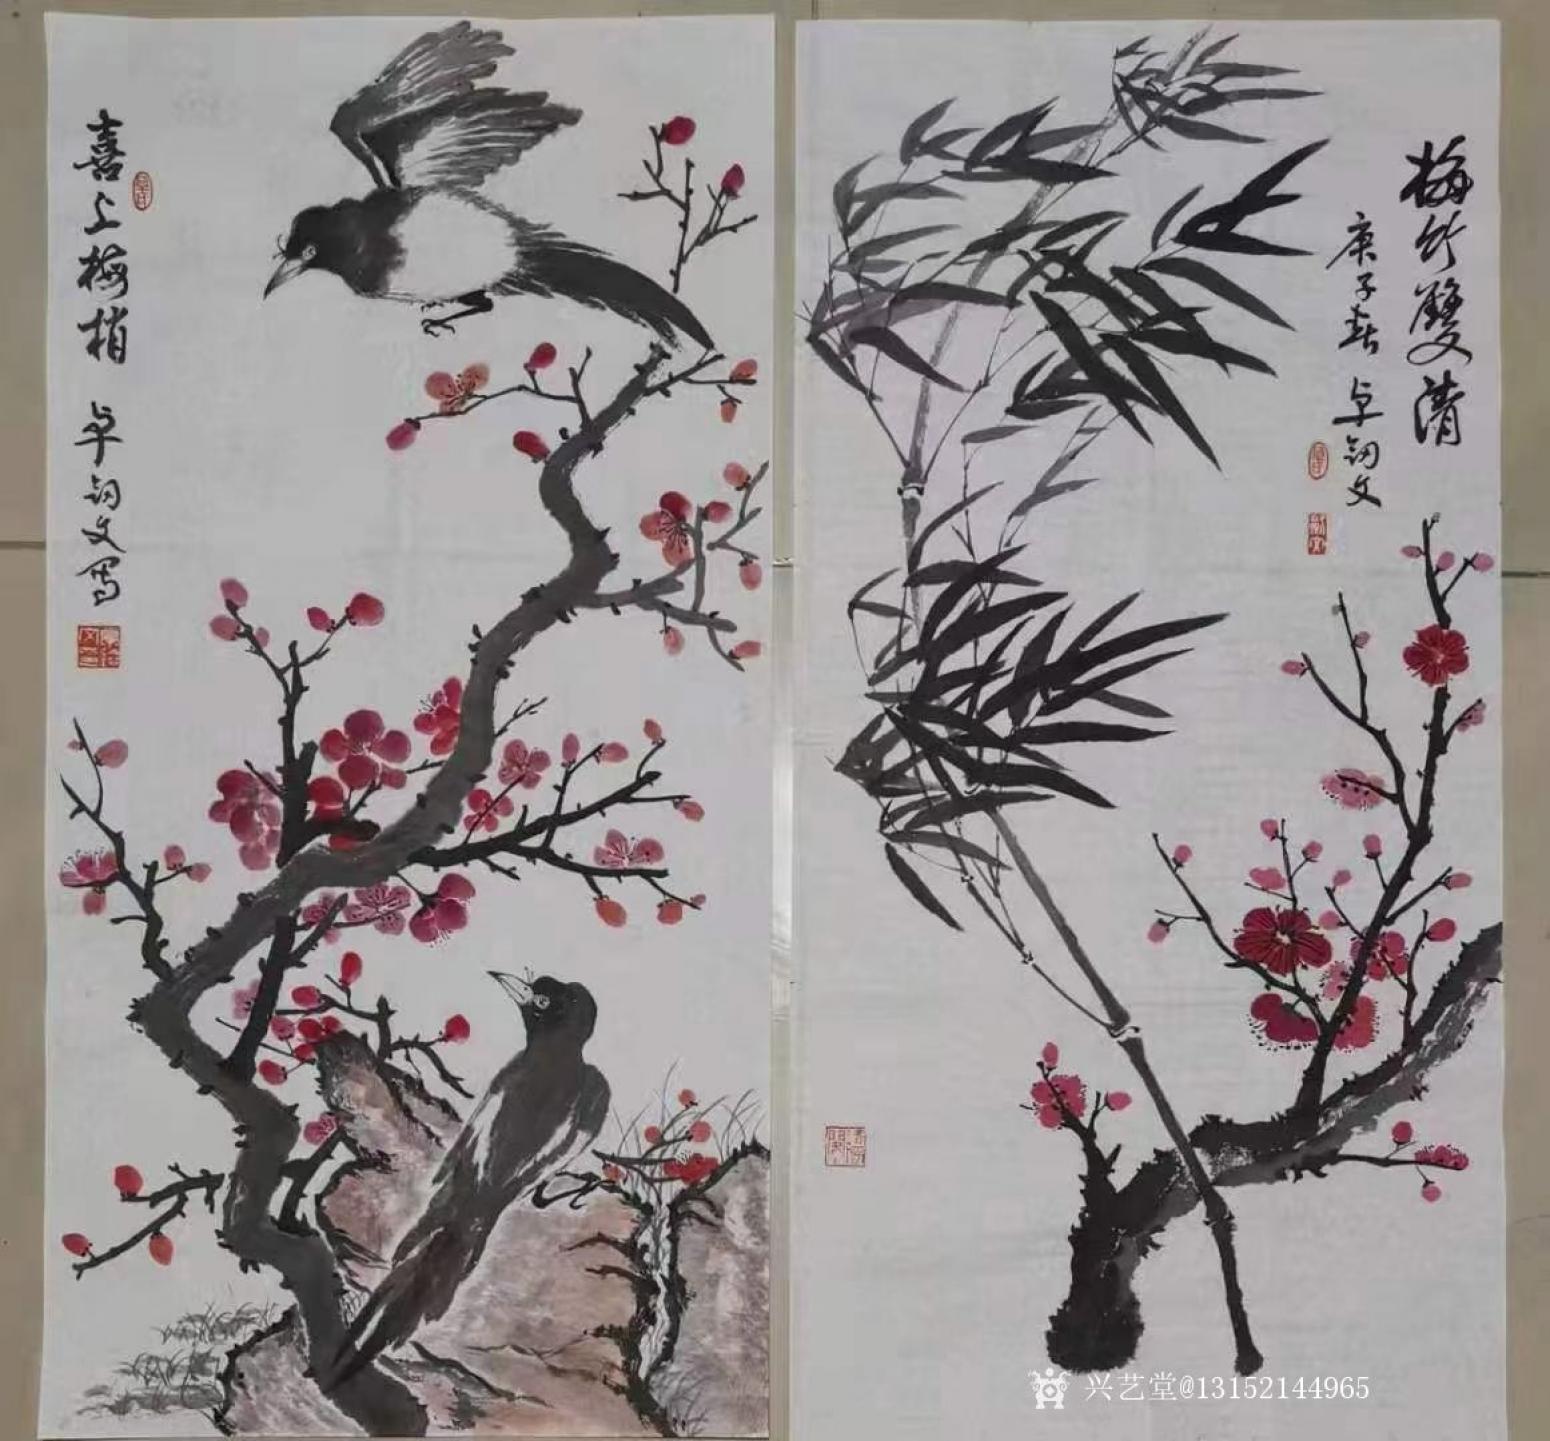 喜上梅梢
卓鈞文写
梅竹雙清
庚子春 卓鈞文
兴艺堂@13152144965